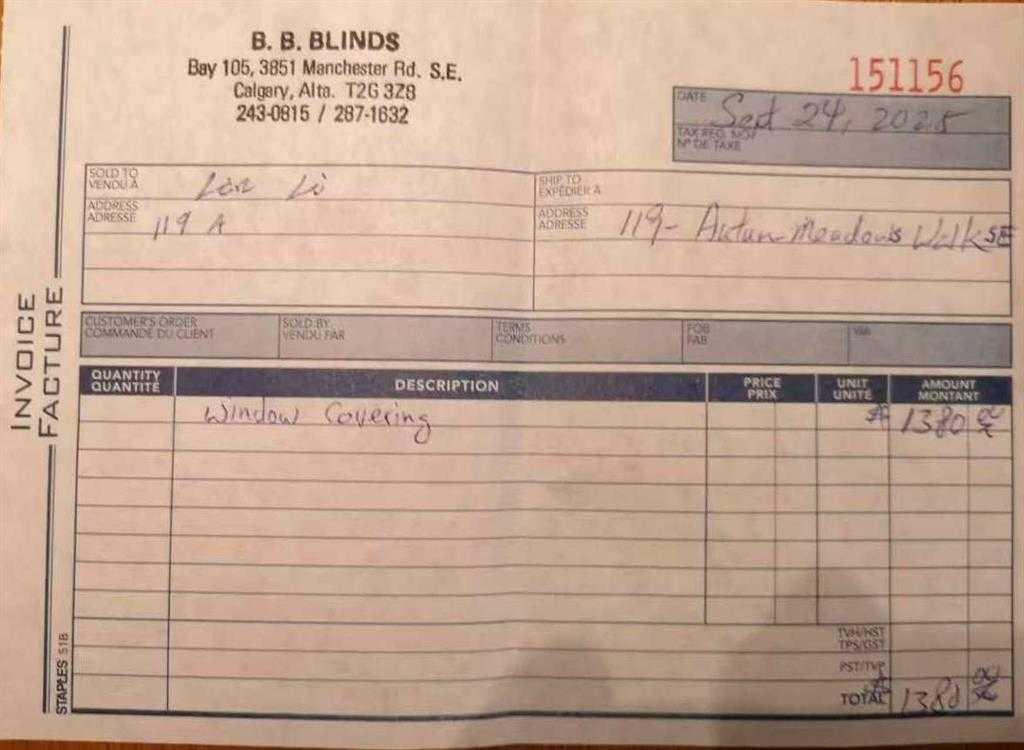 B. B. BLINDS
Bay 105, 3851 Manchester Rd. S.E.
Calgary, Alta. T2G 3Z8
243-0815 / 287-1632
151156
DATE Sept 24, 2025
TAX REG. NO.
Nº DE TAXE
SOLD TO
VENDU À
Li
ADDRESS
ADRESSE
119 A
SHIP TO
EXPÉDIER À
ADDRESS
ADRESSE
119- Autum Meadows Walk SE
INVOICE
FACTURE
CUSTOMER'S ORDER
COMMANDE DU CLIENT
SOLD BY
VENDU PAR
TERMS
CONDITIONS
FOB
FAB
VIA
QUANTITY
QUANTITÉ
DESCRIPTION
PRICE
PRIX
UNIT
UNITÉ
AMOUNT
MONTANT
Window Covering 1380
TVH/HST
TPS/GST
PST/TVP
TOTAL 1380
STAPLES 51B